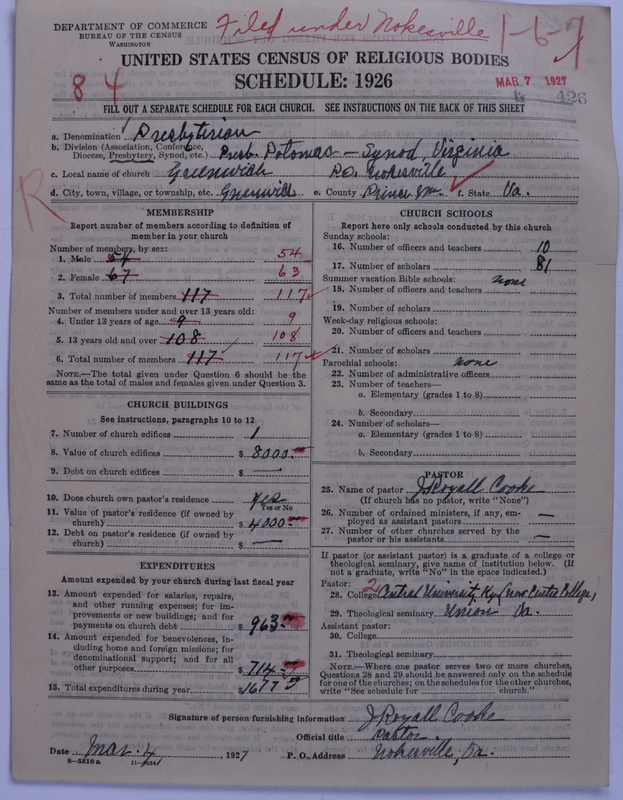 DEPARTMENT OF COMMERCE
BUREAU OF THE CENSUS
WASHINGTON
Filed under Nokesville
1-6-7
UNITED STATES CENSUS OF RELIGIOUS BODIES
SCHEDULE: 1926
84
MAR 7 1927
426
FILL OUT A SEPARATE SCHEDULE FOR EACH CHURCH. SEE INSTRUCTIONS ON THE BACK OF THIS SHEET
a. Denomination Presbyterian
b. Division (Association, Conference, Diocese, Presbytery, Synod, etc.) Presb. Potomac - Synod, Virginia
c. Local name of church Greenwich P.O. Nokesville,
d. City, town, village, or township, etc. Greenwich e. County Prince Wm. f. State Va.
R
MEMBERSHIP
Report number of members according to definition of
member in your church
Number of members, by sex:
1. Male 54 54
2. Female 67 63
3. Total number of members 117 117
Number of members under and over 13 years old:
4. Under 13 years of age 9 9
5. 13 years old and over 108 108
6. Total number of members 117 117
NOTE.—The total given under Question 6 should be
same as the total of males and females given under Question 3.
CHURCH BUILDINGS
See instructions, paragraphs 10 to 12
7. Number of church edifices 1
8. Value of church edifices $ 8000.
9. Debt on church edifices $ —
10. Does church own pastor's residence yes
Yes or No
11. Value of pastor's residence (if owned by
church) $ 4000
12. Debt on pastor's residence (if owned by
church) $ —
EXPENDITURES
Amount expended by your church during last fiscal year
13. Amount expended for salaries, repairs,
and other running expenses; for im-
provements or new buildings; and for
payments on church debt $ 963
14. Amount expended for benevolences, in-
cluding home and foreign missions; for
denominational support; and for all
other purposes $ 714
15. Total expenditures during year $ 1677
CHURCH SCHOOLS
Report here only schools conducted by this church
Sunday schools:
16. Number of officers and teachers 10
17. Number of scholars 81
Summer vacation Bible schools: none
18. Number of officers and teachers
19. Number of scholars
Week-day religious schools:
20. Number of officers and teachers
21. Number of scholars
Parochial schools: none
22. Number of administrative officers
23. Number of teachers—
a. Elementary (grades 1 to 8)
b. Secondary
24. Number of scholars—
a. Elementary (grades 1 to 8)
b. Secondary
PASTOR
25. Name of pastor J Royall Cooke
(If church has no pastor, write "None")
26. Number of ordained ministers, if any, em-
ployed as assistant pastors —
27. Number of other churches served by the
pastor or his assistants —
If pastor (or assistant pastor) is a graduate of a college or
theological seminary, give name of institution below. (If
not a graduate, write "No" in the space indicated.)
Pastor:
28. College 2 Central University, Ky (now Centre College)
29. Theological seminary Union Va.
Assistant pastor:
30. College
31. Theological seminary
NOTE.—Where one pastor serves two or more churches,
Questions 28 and 29 should be answered only on the schedule
for one of the churches; on the schedules for the other churches,
write "See schedule for church."
Signature of person furnishing information J Royall Cooke
Official title Pastor.
Date Mar. 4, 1927 P. O. Address Nokesville, Va.
8-5518a